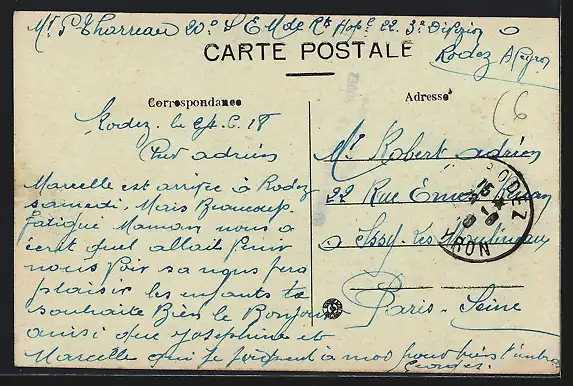 Mr P Tharreau 20e S E M de Rte Hopl 22. 3e Division
CARTE POSTALE
à Rodez Aveyron
Correspondance
Adresse
Rodez. le 18
Cher adrien
Marcelle est arrivée à Rodez
samedi. Mais Beaucoup
fatigué Maman nous a
écrit quel allait venir
nous voir sa nous fera
plaisir les enfants te
souhaite Bien le Bonjour
ainsi que Josephine et
Marcelle qui se joignent à moi pour bien t'embrasser
Georges.
Mr Robert adrien
22 Rue Ernest Renan
à Issy-les-Moulineaux
Paris-Seine
RODEZ
15
AVEYRON